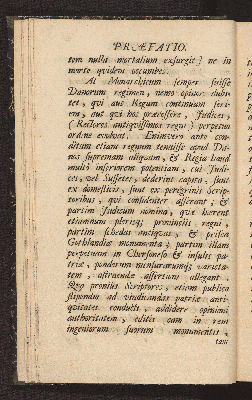 PRÆFATIO.
tem nulla mortalium exsurgit) ne in
morte quidem occumbit.
At Monarchicum semper fuisse
Danorum regimen, nemo opinor dubi-
tet, qui aut Regum continuum seri-
em, aut qui hos præcessere, Judices,
(Rectores antiquissimos regni) perpetuo
ordine evolvat. Enimvero ante con-
ditum etiam regnum tenuisse apud Da-
nos supremam aliquam, & Regia haud
multo inferiorem potentiam, cui Judi-
ces, vel Suffetes, dederint caput, sunt
ex domesticis, sunt ex peregrinis Scrip-
toribus, qui confidenter asserant; &
partim Judicum nomina, quæ hærent
etiamnum plerisq; provinciis regni,
partim schedas antiquas, & prisca
Gothlandiæ monumenta; partim illam
perpetuam in Chersoneso & insulis pa-
triæ, ponderum mensurarumq; varieta-
tem, astruendæ assertioni allegant.
Quo pronius Scriptores, etiam publica
stipendia ad vindicandas patriæ anti-
quitates conducti, addidere opinioni
authoritatem, editis eam in rem
ingeniorum suorum monumentis,
tam